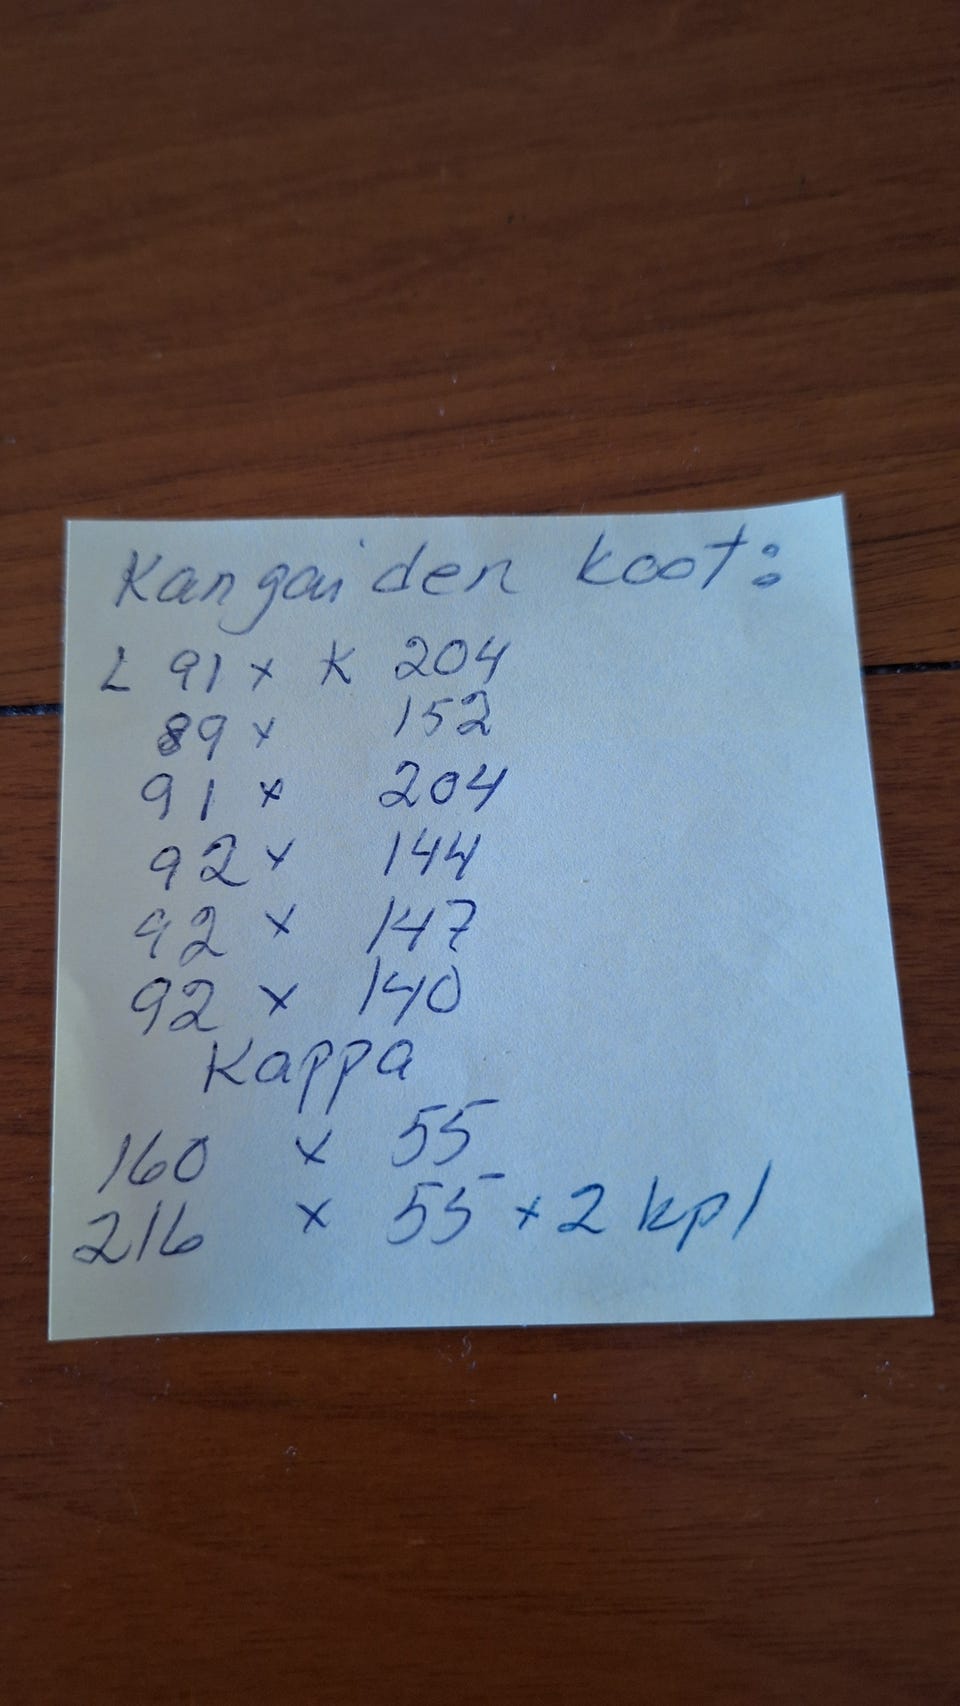 Kangaiden koot:
L 91 x K 204
89 x 152
91 x 204
92 x 144
92 x 147
92 x 140
Kappa
160 x 55
216 x 55 x 2 kpl